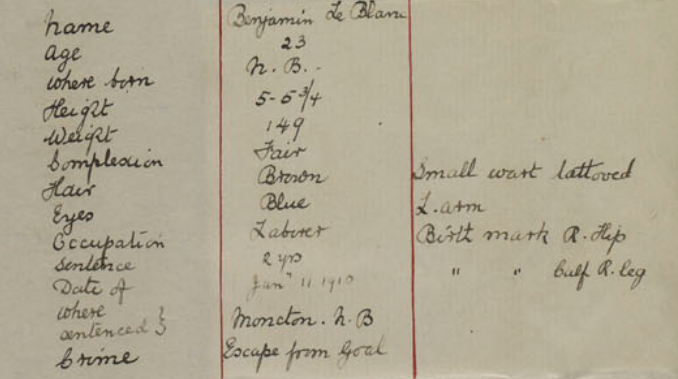 Name Benjamin Le Blanc
Age 23
where born N. B.
Height 5-5 3/4
Weight 149
Complexion Fair
Hair Brown Small wart tattooed
Eyes Blue L. arm
Occupation Laborer Birth mark R. Hip
Sentence 2 yrs " " Calf R. leg
Date of Jany 11 1910
where
sentenced } Moncton. N. B
Crime Escape from Goal